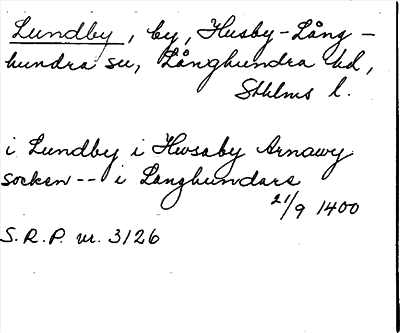 Lundby, by, Husby-Lång-
hundra sn, Långhundra hd,
Sthlms l.
i Lundby i Hwsaby Arnawy
socken -- i Langhundars
21/9 1400
S.R.P. nr. 3126